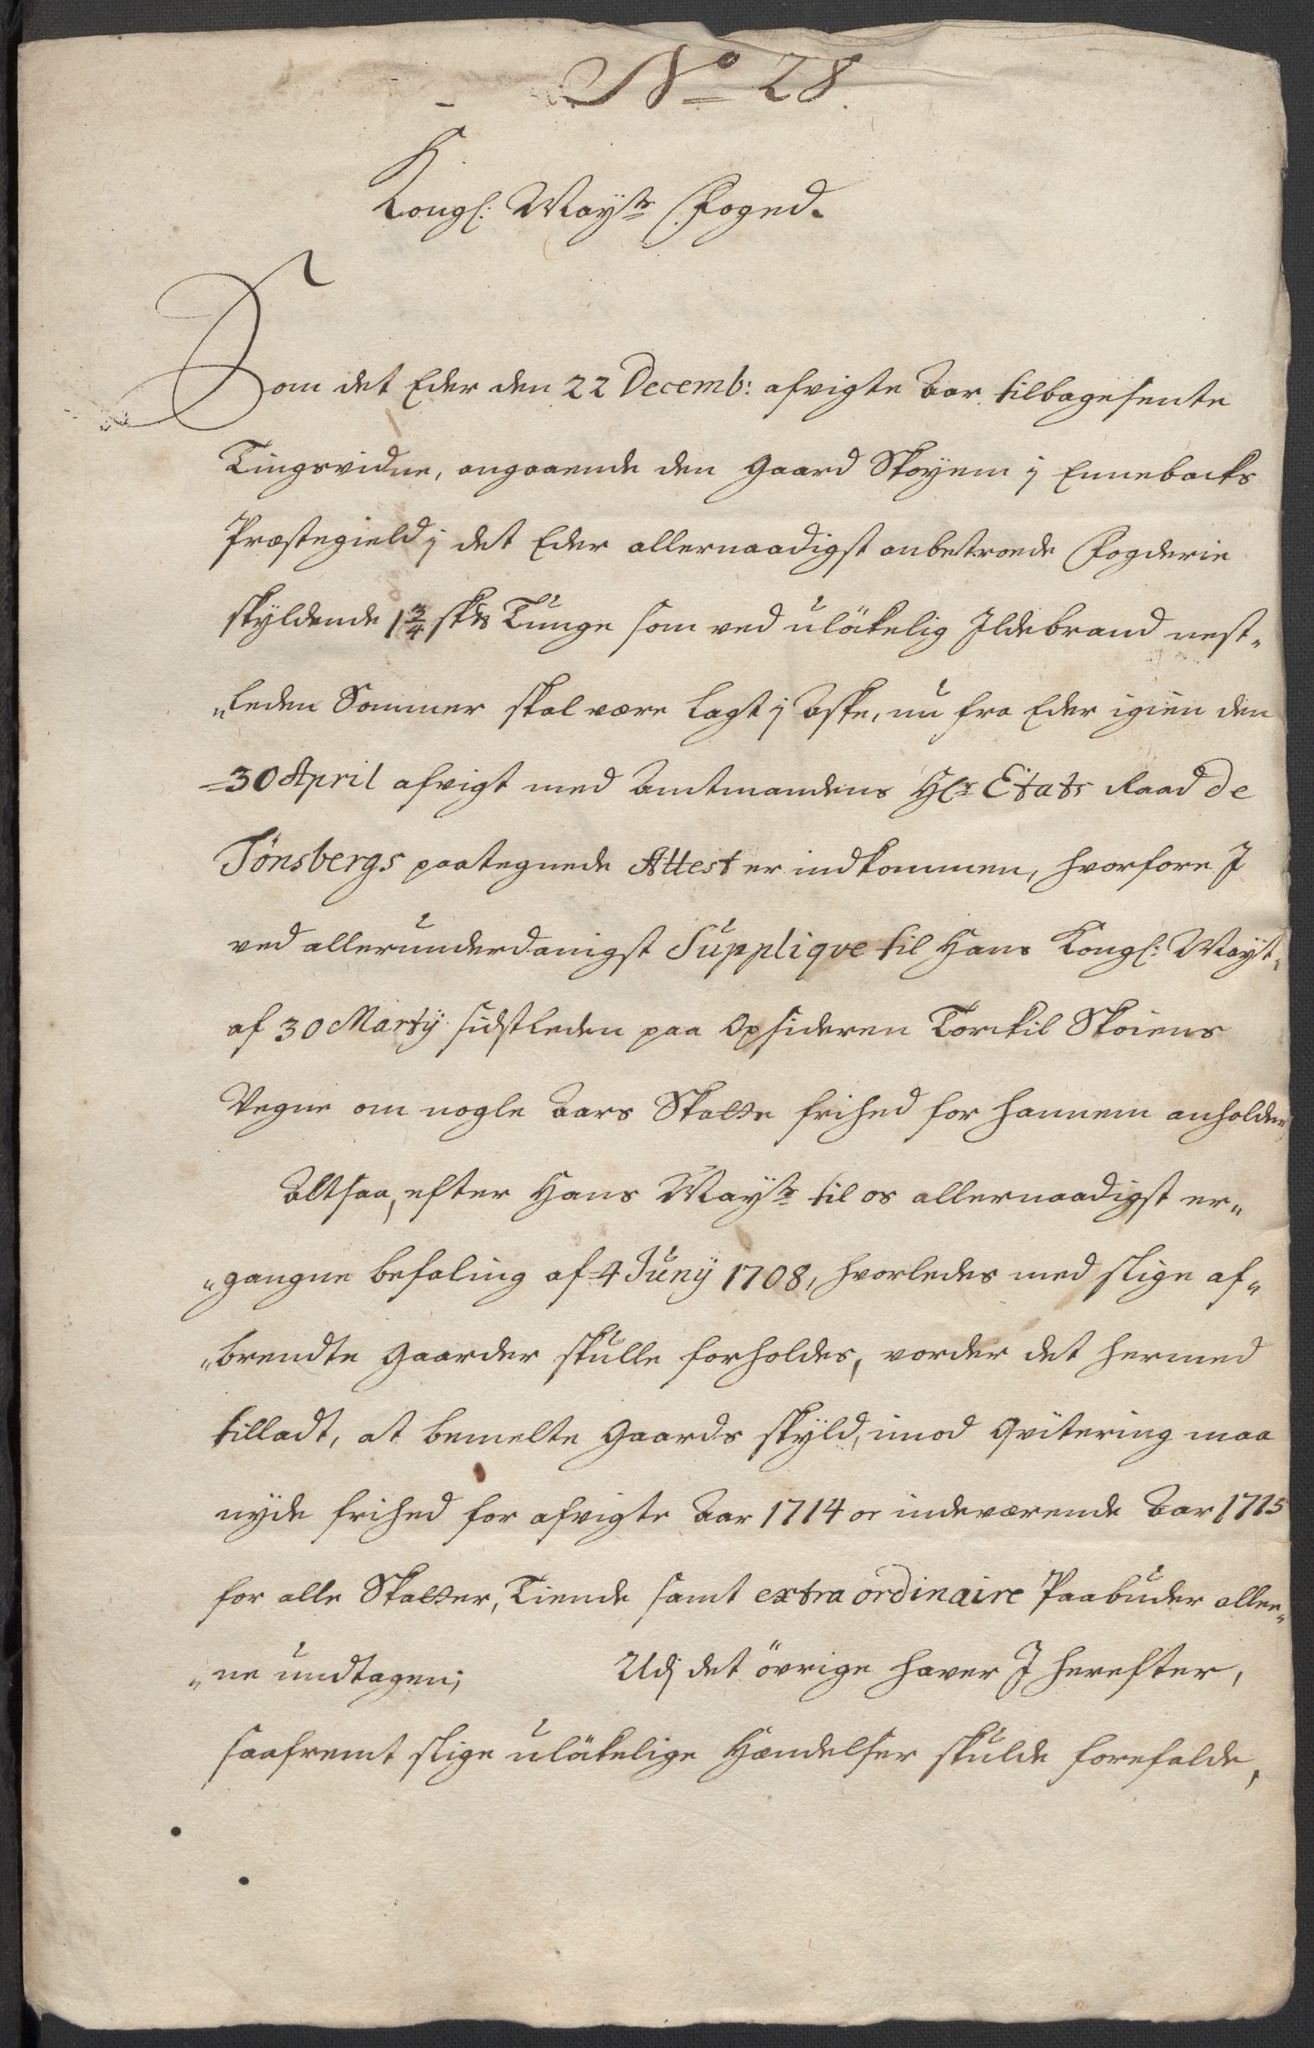 No 28.
Kongl: Mayts Foged.
Som det Eder den 22 Decemb: afvigte Aar tilbagesente
Tingsvidne, angaaende den Gaard Skøyem j Ennebacks
Præstegield j det Eder allernaadigst anbetroede Fogderie
skyldende 1 3/4 skds Tunge som ved ulökelig Ildebrand nest-
"leden Sommer skal være lagt j Aske, nu fra Eder igien den
30 April afvigt med Amtmandens Hr Etats Raad de
Tønsbergs paategnede Attest er indkommen, hvorfore I
ved allerunderdanigst Supplique til Hans Kongl: Mayt.
af 30 Martij sidstleden paa Opsideren Torckil Skøiens
Vegne om nogle Aars Skatte frihed for hannem anholder
Altsaa, efter Hans Mayts til os allernaadigst er-
"gangne befaling af 4 Junij 1708, hvorledes med slige af-
"brendte Gaarder skulle forholdes, vorder det hermed
tilladt, at bemelte Gaards skyld, imod Qvitering maa
nyde frihed for afvigte Aar 1714 oc indeværende Aar 1715
for alle Skatter, Tiende samt extra ordinaire Paabuder alle-
"ne undtagen; Udj det övrige haver I herefter,
saafremt slige ulökelige Hændelser skulde forefalde,